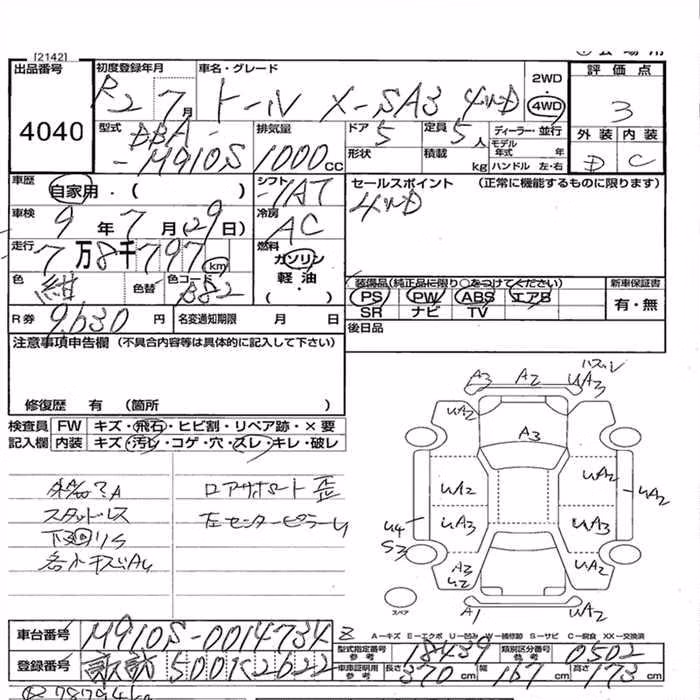 [2142]
出品番号
4040
初度登録年月
R2 7月
車名・グレード
トール X-SA3 4WD
2WD
・
4WD
評価点
3
外装 内装
D C
型式
DBA-
-M910S
排気量
1000cc
ドア 5
形状
定員 5人
積載 kg
ディーラー・並行
モデル年式 年
ハンドル 左・右
車歴
自家用・( )
シフト
IAT
セールスポイント (正常に機能するものに限ります)
4WD
車検
9年7月(29日)
冷房
AC
走行
7万8千797km
燃料
ガソリン
軽油
( )
色
紺
色替
色コード
B82
装備品(純正品に限り○をつけてください)
PS PW ABS エアB
SR ナビ TV
新車保証書
有・無
R券 9,630円
名変通知期限 月 日
後日品
注意事項申告欄 (不具合内容等は具体的に記入して下さい)
修復歴 有 (箇所 )
検査員
記入欄
FW キズ・飛石・ヒビ割・リペア跡・×要
内装 キズ・汚レ・コゲ・穴・スレ・キレ・破レ
スタッドレス
下回りS
ロアサポート歪
左センターピラーU
A3 A2 UA3
UA2
A3
UA2 UA2 UA2
UA3 UA3
U4
S3
A3
U2
UA2
A1 UA2
スペア
A-キズ E-エクボ U-凹み W-補修跡 S-サビ C-腐食 XX-交換済
車台番号 M910S-0014734
型式指定番号 参考 18439
類別区分番号 参考 0502
登録番号 諏訪 500 2622
車庫証明用 参考 長さ 370cm 幅 167cm 高さ 173cm